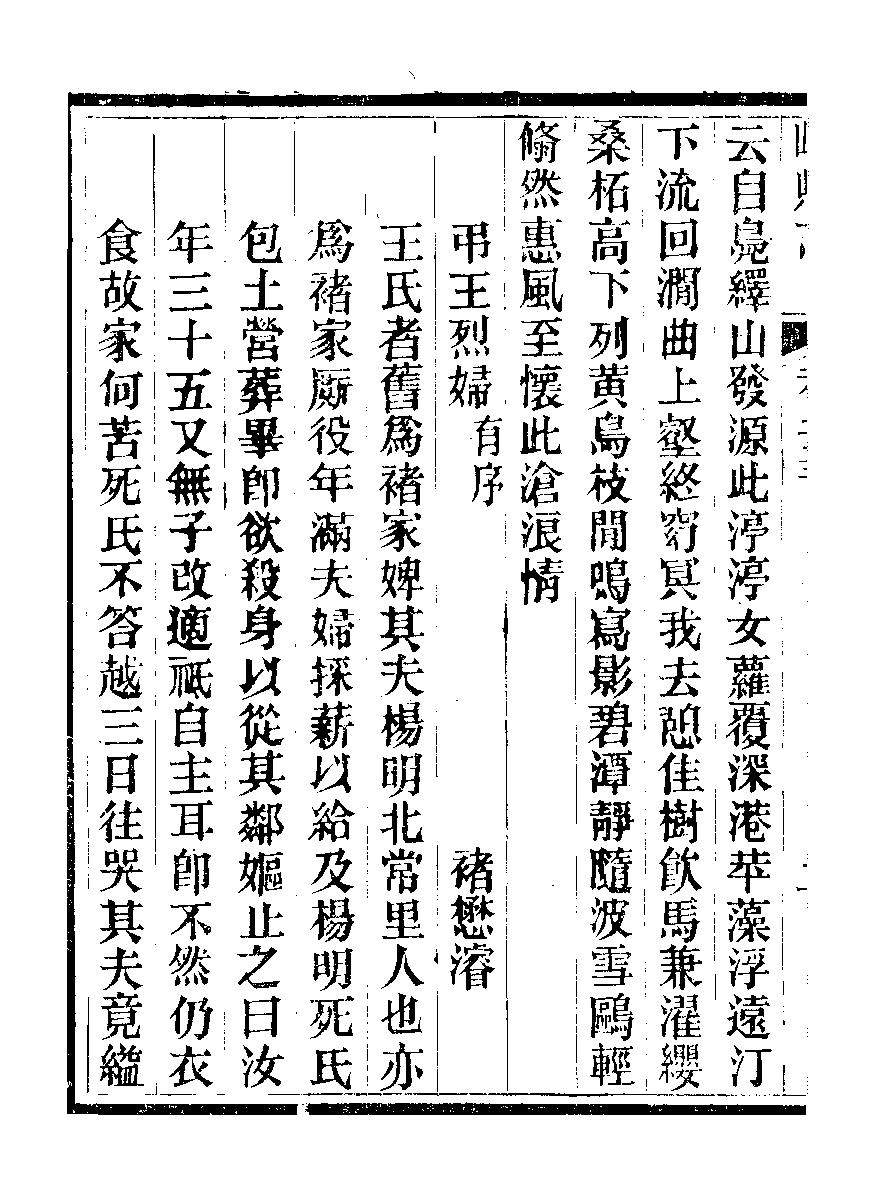 云自鳧繹山發源此渟渟女蘿覆深港苹藻浮遠汀
下流回澗曲上壑終窈冥我去憩佳樹飲馬兼濯纓
桑柘高下列黃鳥枝間鳴寫影碧潭靜隨波雪鷗輕
翛然惠風至懷此滄浪情
弔王烈婦有序 褚懋濬
王氏者舊爲褚家婢其夫楊明北常里人也亦
爲褚家厮役年滿夫婦採薪以給及楊明死氏
包土營葬畢即欲殺身以從其鄰嫗止之曰汝
年三十五又無子改適祗自主耳即不然仍衣
食故家何苦死氏不答越三日往哭其夫竟縊